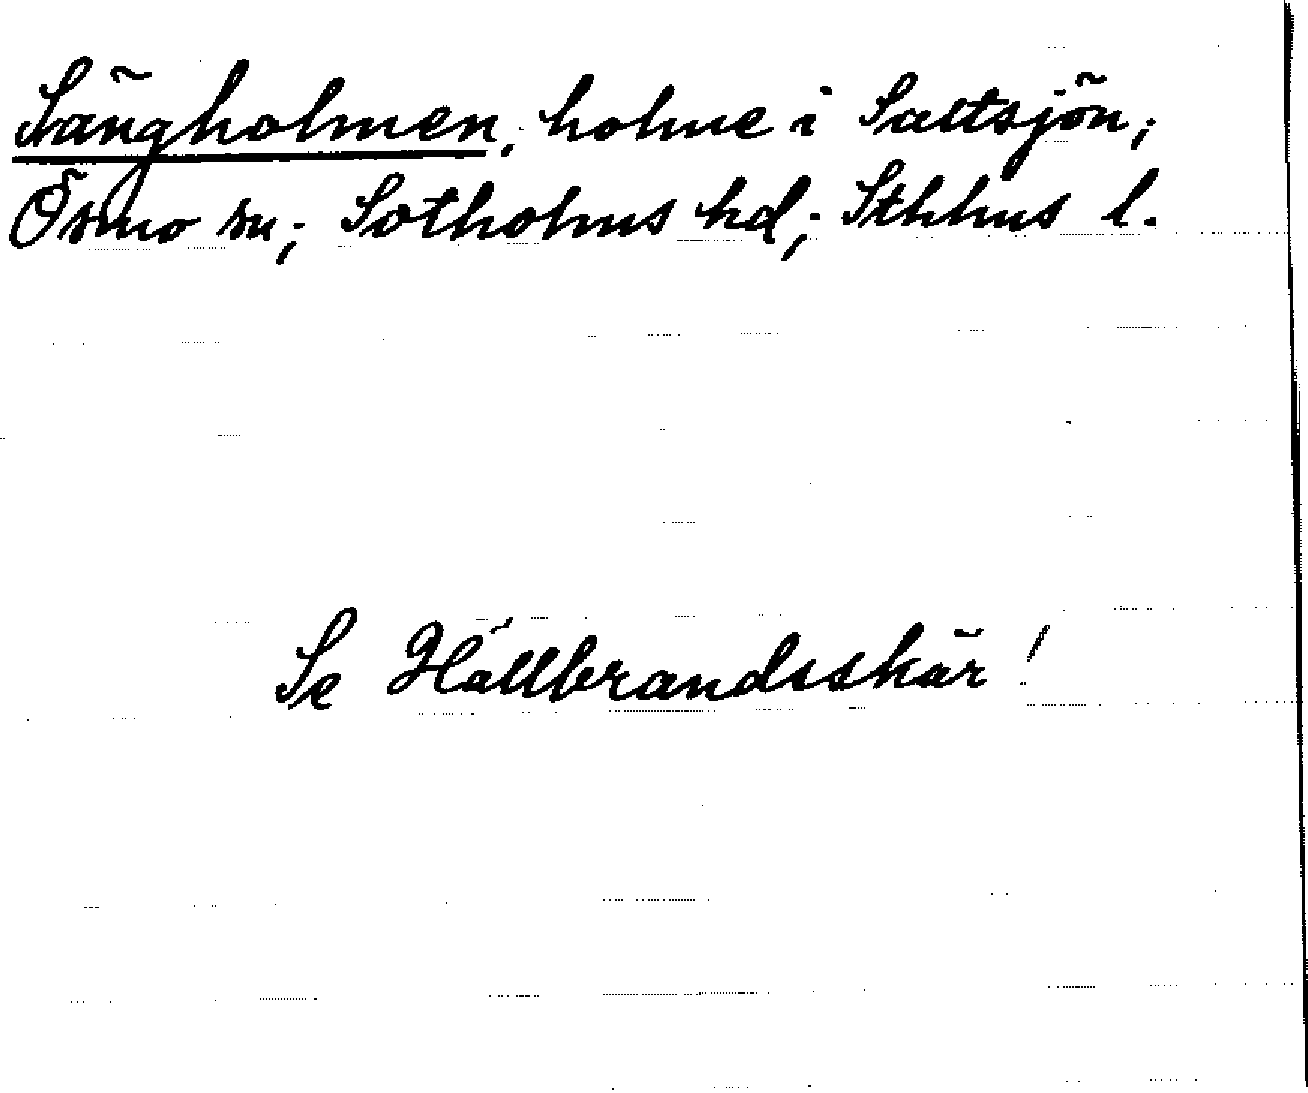 Sängholmen, holme i Saltsjön;
Ösmo sn; Sotholms hd; Sthlms l.
Se Hållbrandsskär!